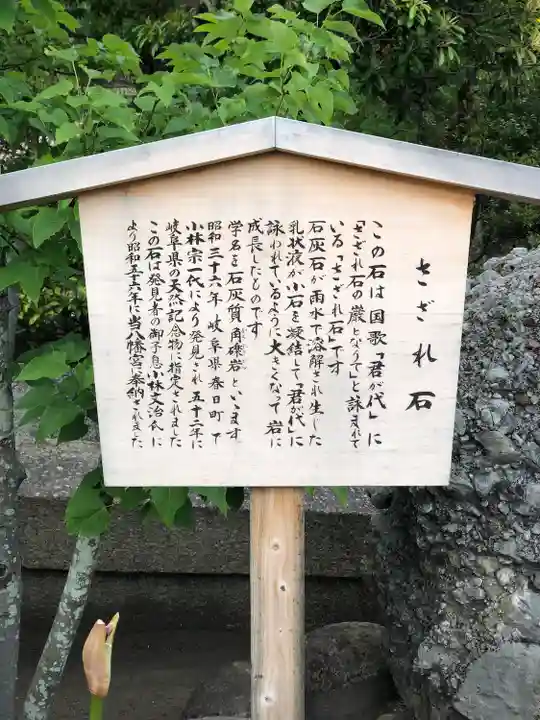 さざれ石
この石は国歌「君が代」に
「さざれ石の巌となりて」と詠まれて
いる「さざれ石」です
石灰石が雨水で溶解され生じた
乳状液が小石を凝結して「君が代」に
詠われているように大きくなって岩に
成長したものです
学名を石灰質角礫岩といいます
昭和三十六年岐阜県春日町で
小林宗一代により発見され五十二年に
岐阜県の天然記念物に指定されました
この石は発見者の御子息小林文治氏に
より昭和五十六年に当八幡宮に奉納されました